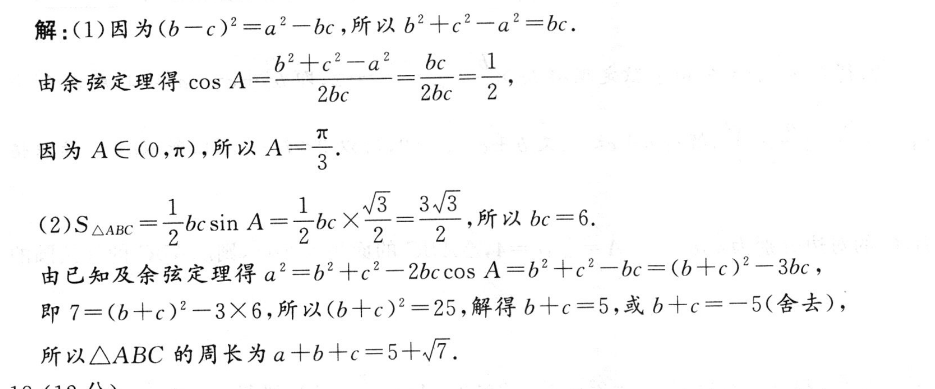 解:(1)因为(b-c)²=a²-bc,所以 b²+c²-a²=bc.
由余弦定理得 cos A=\frac{b²+c²-a²}{2bc}=\frac{bc}{2bc}=\frac{1}{2},
因为 A∈(0,π),所以 A=\frac{π}{3}.
(2)S△ABC=\frac{1}{2}bcsin A=\frac{1}{2}bc×\frac{√3}{2}=\frac{3√3}{2},所以 bc=6.
由已知及余弦定理得 a²=b²+c²-2bccos A=b²+c²-bc=(b+c)²-3bc,
即 7=(b+c)²-3×6,所以(b+c)²=25,解得 b+c=5,或 b+c=-5(舍去),
所以△ABC 的周长为 a+b+c=5+√7.